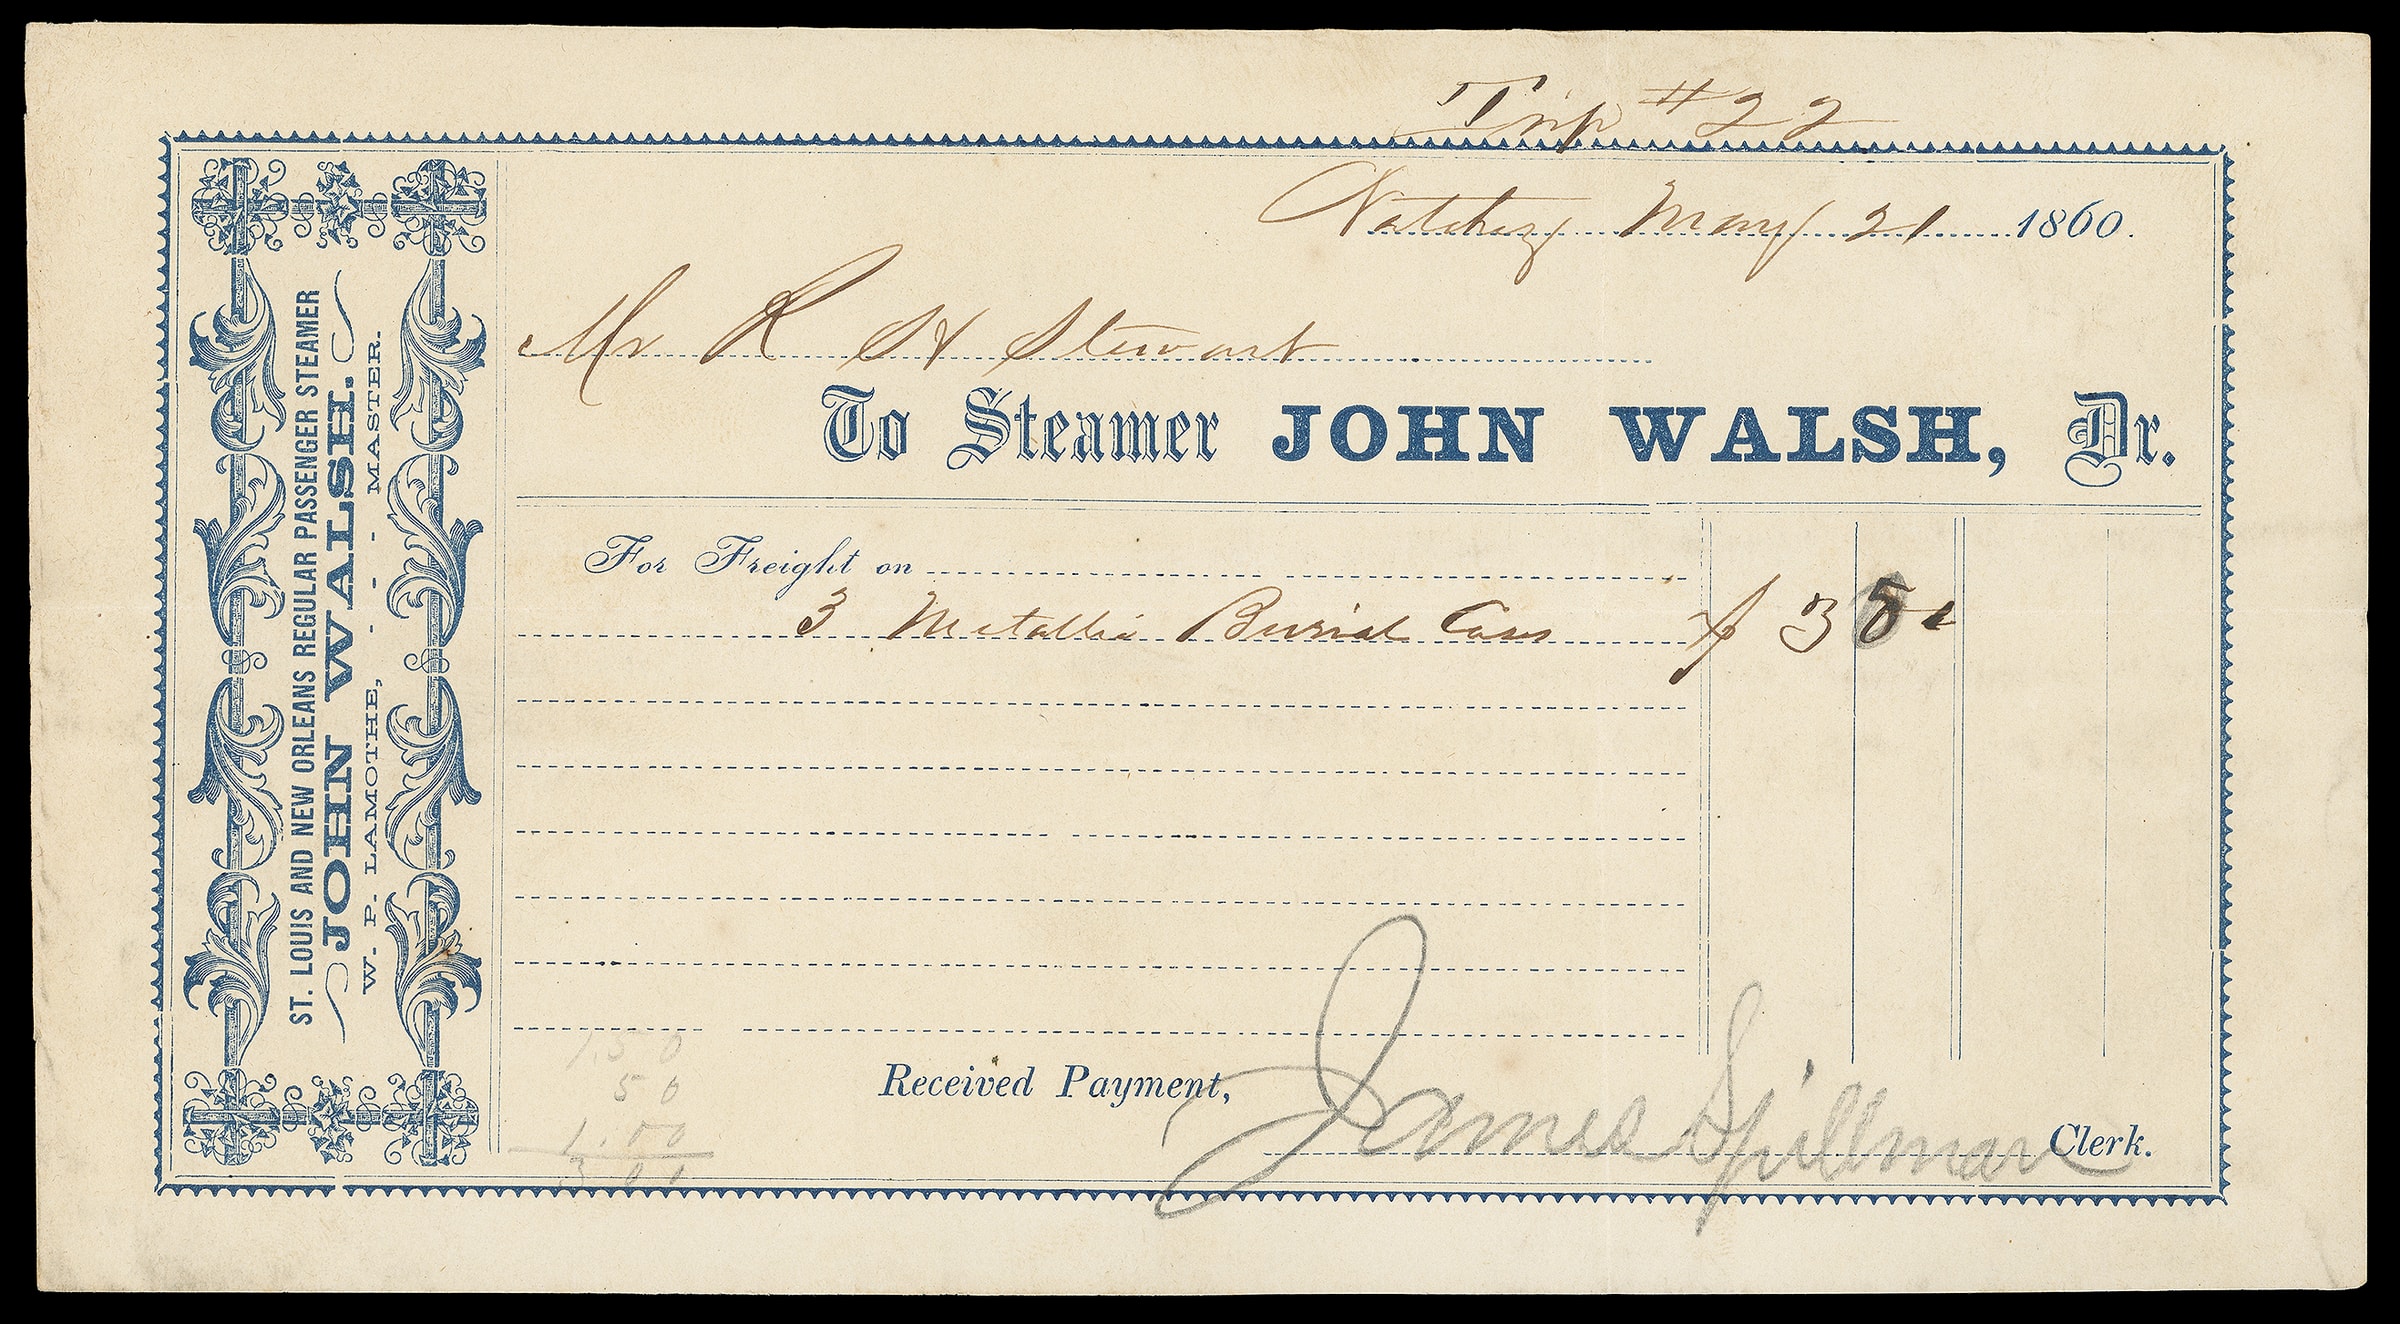 Trip #22
Natchez May 21 1860.
Mr R H Stewart
To Steamer JOHN WALSH, Dr.
For Freight on
3 Metallic Burial Cases $ 3
Received Payment,
James Spillman Clerk.
1.50
50
1.00
3 00
ST. LOUIS AND NEW ORLEANS REGULAR PASSENGER STEAMER
JOHN WALSH.
W. P. LAMOTHE, - - - MASTER.